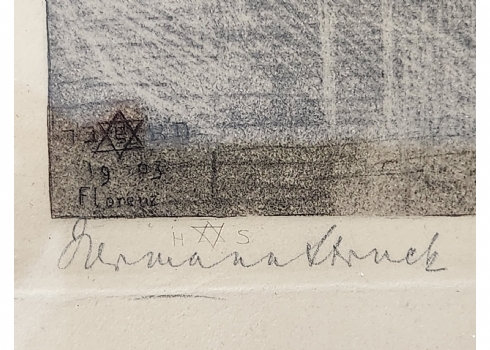 19 03
Florenz
H S
Hermann Struck